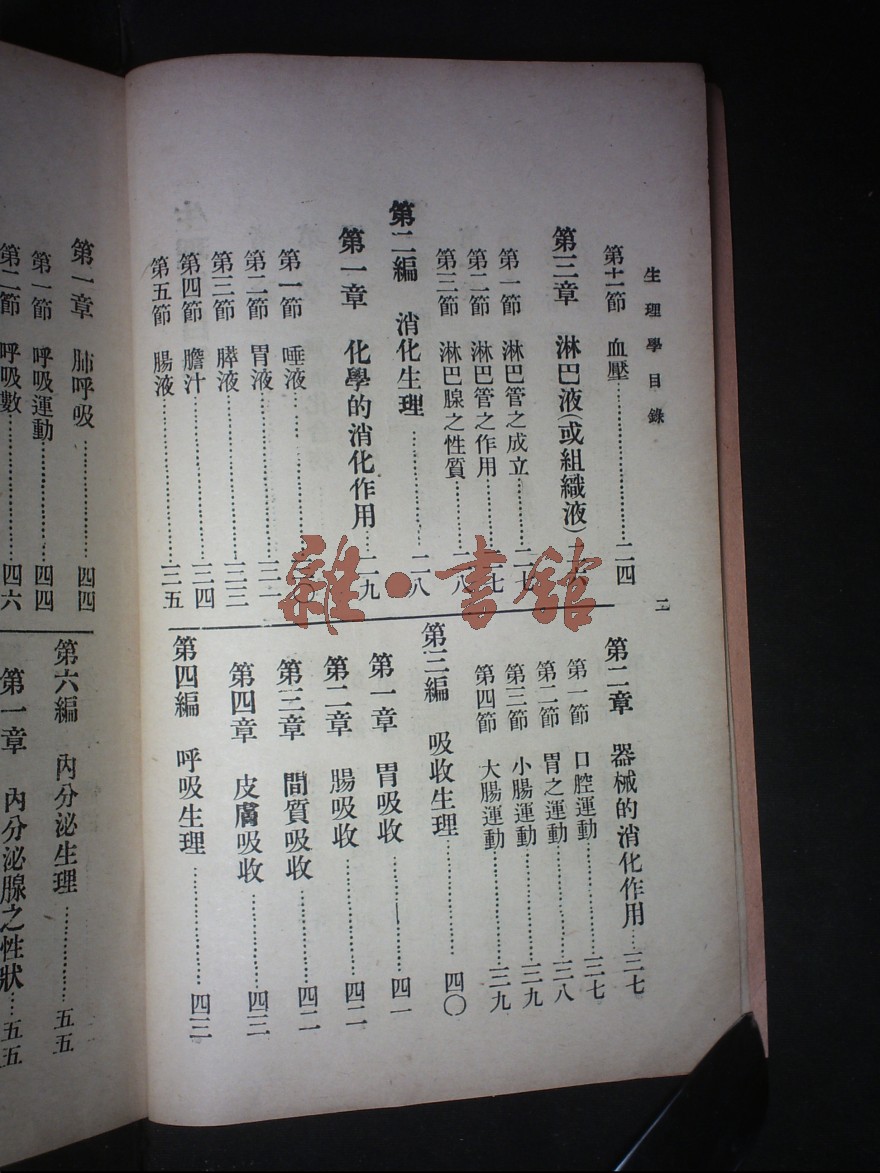 生理學目錄
二
第十一節　血壓……………二四
第三章　淋巴液(或組織液)二六
第一節　淋巴管之成立……二七
第二節　淋巴管之作用……二七
第三節　淋巴腺之性質……二八
第二編　消化生理…………二八
第一章　化學的消化作用…二九
第一節　唾液………三〇
第二節　胃液……………三一
第三節　膵液……………三三
第四節　膽汁……………三四
第五節　腸液……………三五
第二章　器械的消化作用…三七
第一節　口腔運動…………三七
第二節　胃之運動…………三八
第三節　小腸運動…………三九
第四節　大腸運動…………三九
第三編　吸收生理…………四〇
第一章　胃吸收……………四一
第二章　腸吸收……………四二
第三章　間質吸收…………四二
第四章　皮膚吸收…………四三
第四編　呼吸生理…………四三
第一章　肺呼吸……………四四
第一節　呼吸運動…………四四
第二節　呼吸數……………四六
第六編　內分泌生理………五五
第一章　內分泌腺之性狀…五五
雜·書館